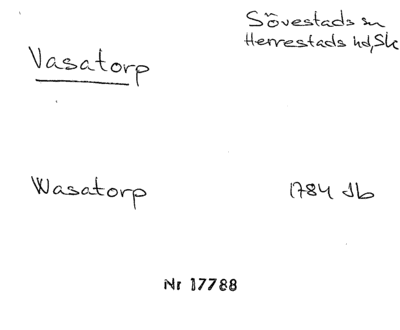 Sövestads sn
Herrestads hd, Sk
Vasatorp
Wasatorp 1784 Jb
Nr 17788